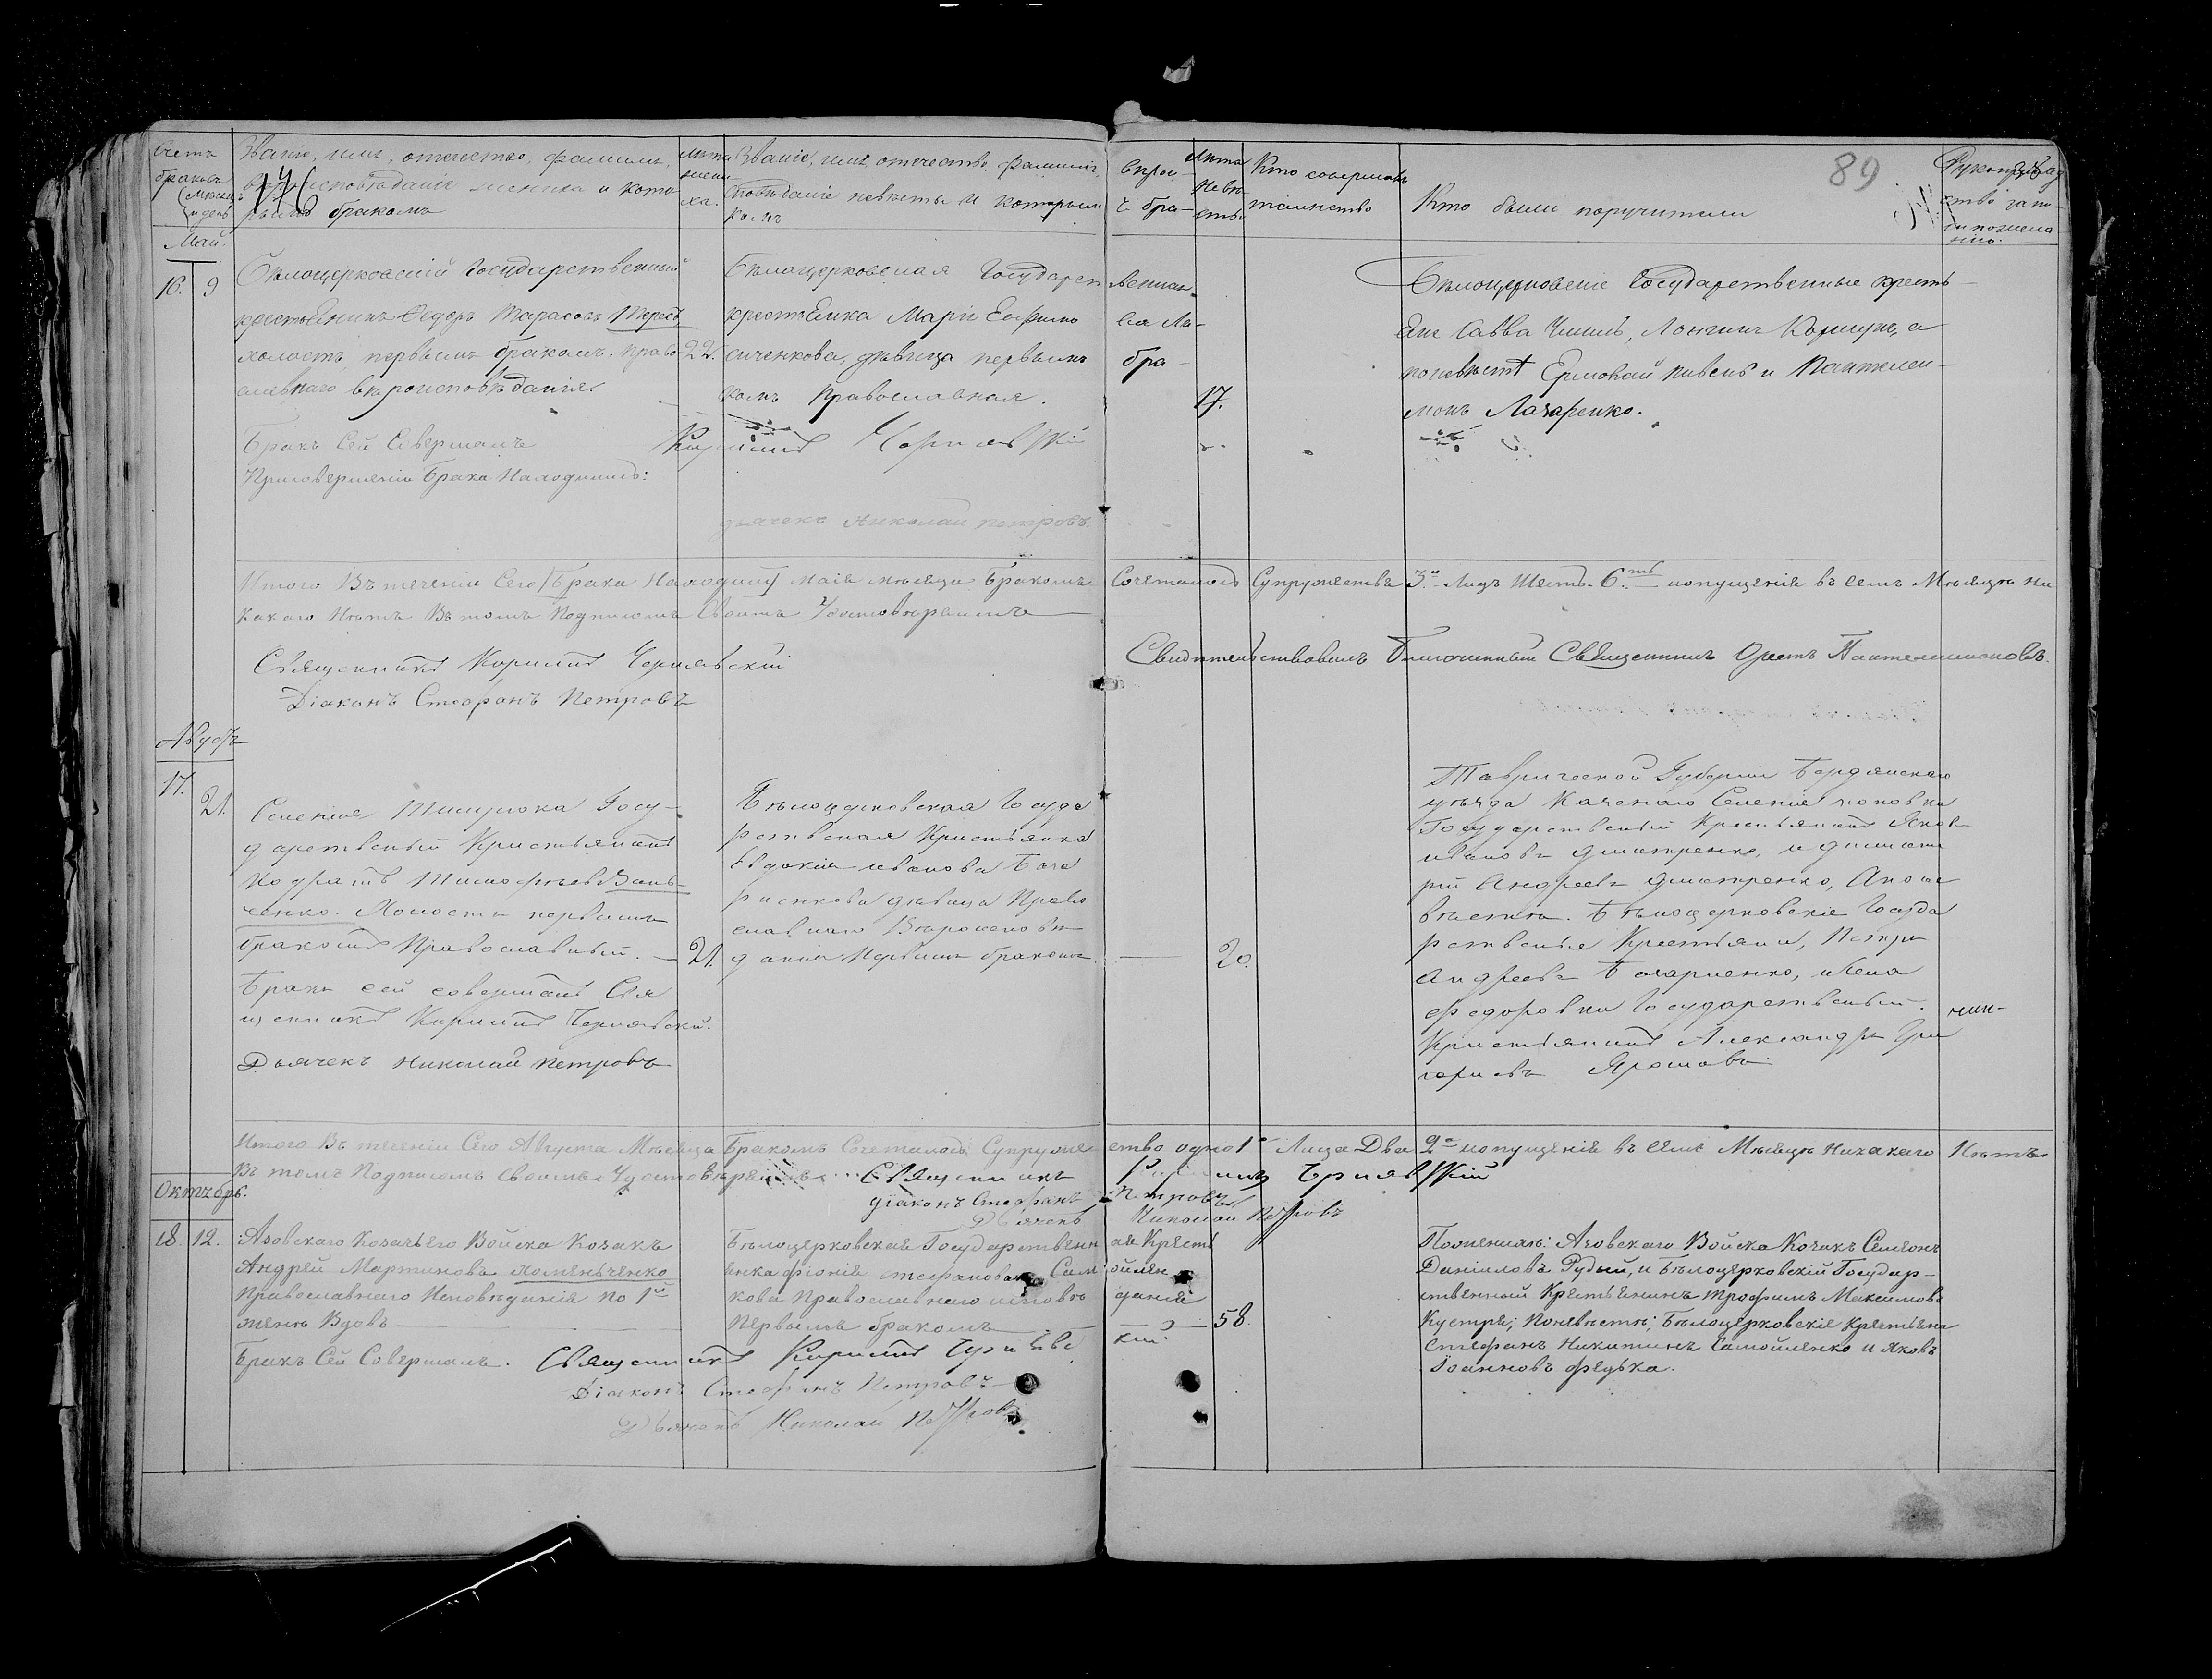 Счетъ браковъ (Месяцъ и день
Званіе, имя, отечество, фамилія,
вѣроисповѣданіе жениха и кото-
рымъ бракомъ
лѣта жени-
ха.
Званіе, имя отечество, фамилія, вѣрои-
сповѣданіе невѣсты и которымъ бра-
комъ
лѣта
невѣ-
сты
Кто совершалъ
таинство
Кто были поручители
89
Рукоприклад
ство
по
Май.
16. 9
Бѣлоцерковскій Государственный
крестьянинъ Ѳедоръ Тарасовъ
холостъ, первымъ бракомъ. право
славнаго вѣроисповѣданія.
22.
Бѣлоцерковская Государственная
крестьянка Марія Ефимова Ла-
сиченкова, дѣвица первымъ бра-
комъ Православная.
17.
Бѣлоцерковскіе Государственные кресть-
яне Савва Чишъ, Лонгинъ Коржунъ, а
по невѣстѣ Ермолай Пивень и Пантелеи-
монъ Лазаренко.
Бракъ Сей Совершалъ Кирилъ Чернявскій
При совершеніи Брака Находились:
дьячекъ Николай Петровъ.
Итого Въ теченіи Сего Маія мѣсяца Бракомъ Сочеталось Супружества 3. Лицъ Шесть. 6. и опущенія въ семъ Мѣсяцѣ ни
какого Нѣтъ Въ томъ Подписомъ Своимъ Удостовѣряемъ
Священникъ Кирилъ Чернявскій
Свидетельствовалъ Благочинный Священникъ Орестъ Пантелеимоновъ.
Діаконъ Стефанъ Петровъ
Августъ
17. 21.
Селенія Госу-
дарственый Кристьянинъ
Кодратъ Тимофѣевъ
ченко. Холостъ первымъ
бракомъ Православный.
21.
Бѣлоцерковская Госуда
рственая Кристьянка
Евдокія иванова Боча
рненкова дѣвица Право
славнаго Вѣроисповѣ
данія Первымъ бракомъ.
20.
Таврической Губерніи Бердянскаго
уѣзда Казенаго Селенія
Государственый Крестьянинъ Яковъ
ивановъ дмитренко, и дими
рій Андреевъ дмитренко, А по не
вѣстѣ. Бѣлоцерковскіе Госуда
рственые Крестьяни, Петръ
Андреевъ Бочарненко,
федоровки Государственый.
Кристьянинъ Александръ Гри
горіевъ Ярошовъ
Бракъ сей совершалъ Свя
щенникъ Кирилъ Чернявскій.
Дьячекъ Николай Петровъ
Итого Въ теченіи Сего Августа Мѣсяца Бракомъ Сочеталось Супруже ство одно 1 Лица Два 2 и опущенія въ семъ Мѣсяцѣ Никакого Нѣтъ
Въ томъ Подписомъ Своимъ Удостовѣряемъ Священникъ Кирилъ Чернявскій
діаконъ Стефанъ Петровъ
Дьячекъ Николай Петровъ
Октябрь.
18. 12.
Азовскаго Козачьяго Войска Козакъ
Андрей Мартиновъ хоменьченко
Православнаго Исповѣданія по 1й
женѣ Вдовъ
Бѣлоцерковская Государственная Кресть
янка фіонія стефановна Самойлен
кова Православнаго исповѣданія
Первымъ бракомъ
58.
По женихѣ: Азовскаго Войска Козакъ Семенъ
Даніиловъ Рудый, и Бѣлоцерковскій Государ-
ственный Крестьянинъ трофимъ Максимовъ
Кустря; По невѣстѣ; Бѣлоцерковскіе Крестьяне
стефанъ Никитинъ Самойленко и Яковъ
Іоанновъ федька.
Бракъ Сей Совершалъ. Священникъ Кирилъ Чернявскій
Діаконъ Стефанъ Петровъ
Дьячекъ Николай Петровъ